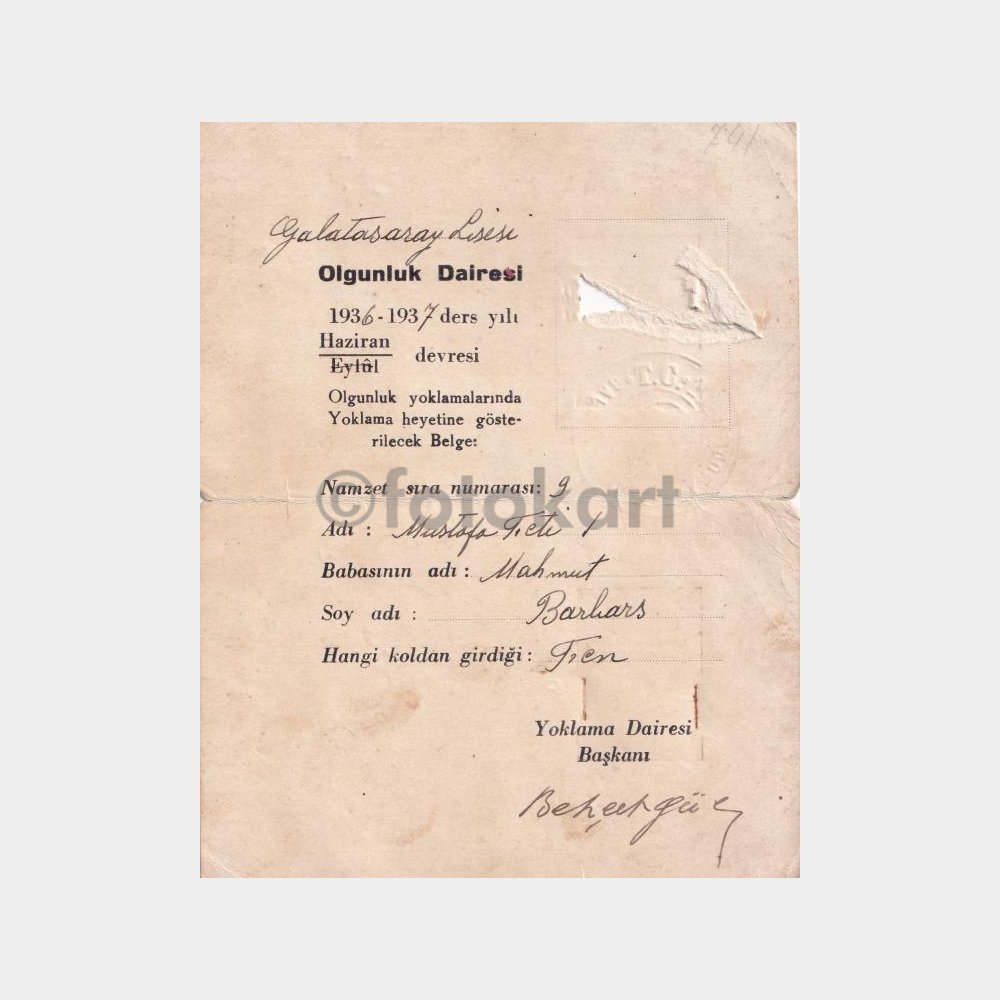 741
Galatasaray Lisesi
Olgunluk Dairesi
1936-1937 ders yılı
Haziran
Eylûl devresi
Olgunluk yoklamalarında
Yoklama heyetine göste-
rilecek Belge:
T.C.
©fotokart
Namzet sıra numarası: 9
Adı : Mustafa
Babasının adı : Mahmut
Soy adı : Barbars
Hangi koldan girdiği : Fen
Yoklama Dairesi
Başkanı
Behçet Gücer